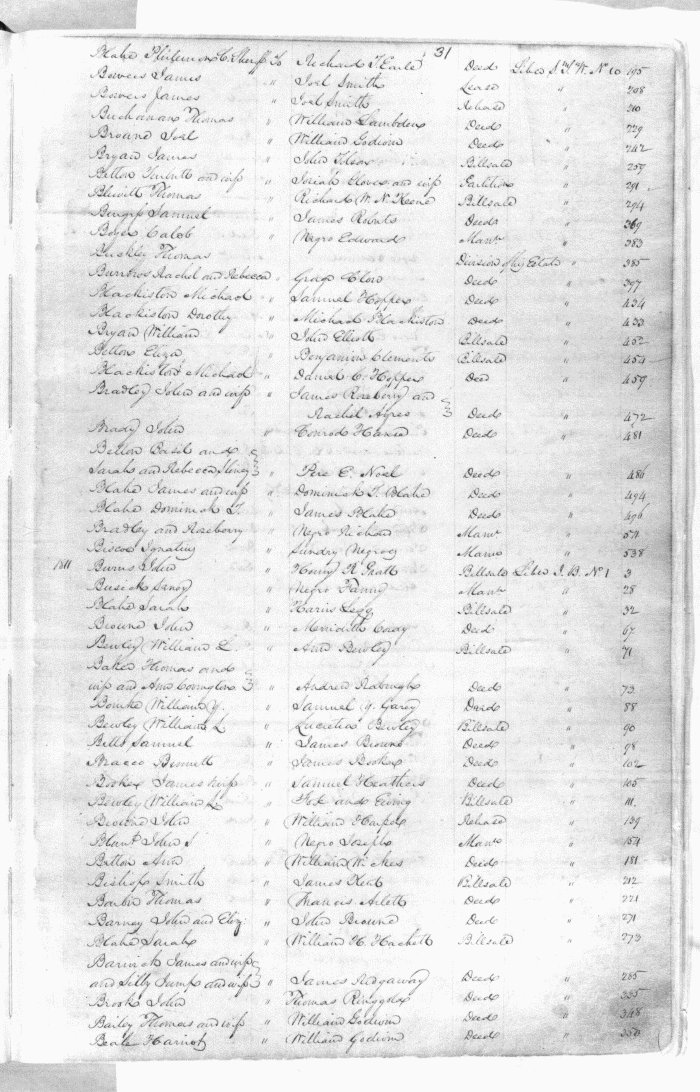 31
Blake Philemon C. Sheriff to Richard T Earle Deed Liber J.T.W. No 10 195
Bowers James " Joel Smith Lease " 208
Bowers James " Joel Smith Release " 210
Buchanan Thomas " William Lambden Deed " 229
Browne Joel " William Godwin Deed " 242
Bryan James " John Billsale " 259
Betton and wife " Josiah Glover and wife Partition " 291
Blewitt Thomas " Richard W. N. Keene Billsale " 294
Samuel " James Roberts Deed " 369
Boyer Caleb " Negro Edward Manr " 383
Buckley Thomas Division of his Estate " 385
Burrows Rachel and Rebecca " George Deed " 397
Blackiston Michael " Samuel Hopper Deed " 434
Blackiston Dorothy " Michael Blackiston Deed " 433
Bryan William " John Elliott Billsale " 452
Betton Eliza " Benjamin Clements Billsale " 454
Blackiston Michael " Daniel C. Hopper Deed " 459
Bradley John and wife " James Roseberry and
Rachel Ayres Deed " 472
Brady John " Conrod Deed " 481
Betton Basil and
Sarah and Rebecca " Pere E. Noel Deed " 486
Blake James and wife " Dominick T. Blake Deed " 494
Blake Dominick T. " James Blake Deed " 496
Bradley and Roseberry " Negro Richard Manr " 511
Biscoe Ignatius " Sundry Negroes Manr " 538
1811 Burns John " Henry Pratt Billsale Liber J. B. No 1 3
Busick " Negro Fanny Manr " 28
Blake Sarah " Harris Legg Billsale " 32
Browne John " Merridith Deed " 67
Bewley William L. " Ann Bewley Billsale " 71
Baker Thomas and
wife and Ann Covington " Andrew Deed " 73
Bourke William Y. " Samuel Y. Garey Deed " 88
Bewley William L " Lucretia Bewley Billsale " 90
Betts Samuel " James Browne Deed " 98
Bracco Bennett " James Booker Deed " 102
Booker James & wife " Samuel Heathers Deed " 105
Bewley William L. " and George Billsale " 111
Browne John " William Harper Release " 139
Blunt John S " Negro Joseph Manr " 154
Betton Ann " William Wickes Deed " 181
Bishop Smith " James Kent Billsale " 212
Barber Thomas " Francis Arlett Deed " 221
Barney John and Eliz: " John Browne Deed " 271
Blake Sarah " William H. Hackett Billsale " 273
Barwick James and wife
and Silly Jump and wife " James Ridgaway Deed " 285
Brooke John " Thomas Ringgold Deed " 335
Bailey Thomas and wife " William Godwin Deed " 348
Beale Harriot " William Godwin Deed " 350